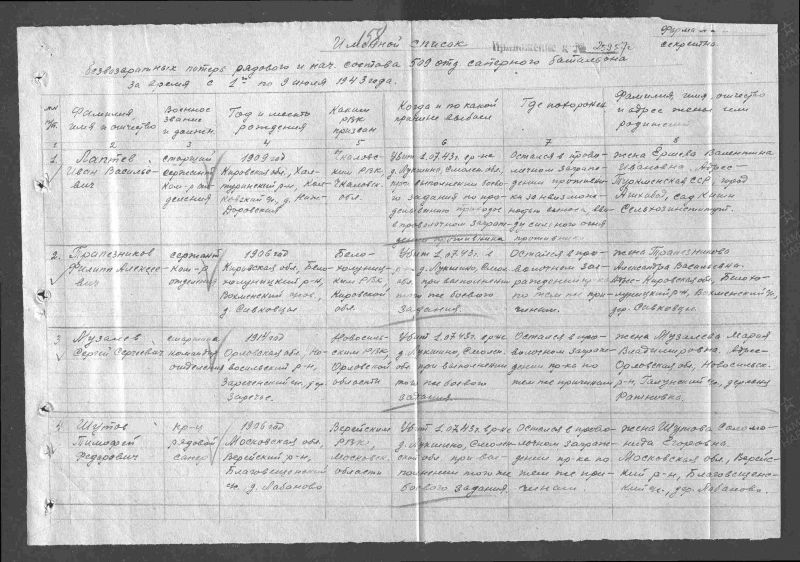 158
Именной список
Приложение к № 25957с
Форма
секретно
безвозвратных потерь рядового и нач. состава 509 отд саперного батальона
за время с 1го по 9 июля 1943 года.
Фамилия, имя и отчество
Военное звание и должн.
Год и место рождения
Каким РВК призван
Когда и по какой причине выбыл
Где похоронен
Фамилия, имя, отчество и адрес жены или родителей
1 2 3 4 5 6 7 8
1. Лаптев
Иван Василье-
вич
старший
сержант
Ком-р от
деления
1909 год
Кировская обл, Хал-
туринский р-н,
Чкаловс-
ким РВК,
Чкаловск.
обл.
Убит 1.07.43г. в р-не
д. Лукшино, Смолен. обл.
при выполнении боево-
го задания по про-
в проволочном заграж-
дении противника
Остался в прово-
лочном заграж-
дении противни-
ка
сильного огня
противника
жена Ершова Валентина
Ивановна. Адрес-
Туркменская ССР, город
Ашхабад, сад Кеши
Сельхозинститут.
2. Трапезников
Филипп Алексее-
вич
сержант
ком-р
отделения
1906 год
Кировская обл, Бело-
холуницкий р-н,
д. Сивковцы
Бело-
холуниц-
ким РВК,
Кировской
обл.
Убит 1.07.43г. в
р-не д. Лукшино, Смол.
обл. при выполнении
того же боевого
задания.
Остался в про-
волочном заг-
раждении пр-ка
по тем же при-
чинам.
жена Трапезникова
Александра Васильевна.
Адрес-Кировская обл, Белохо-
луницкий р-н,
дер. Сивковцы.
3 Музалев
Сергей Сергеевич
старшина
командир
отделения
Орловская обл, Но-
восильский р-н,
Заречье.
Новосиль-
ским РВК,
Орловской
области
Убит 1.07.43г. в р-не
д. Лукшино, Смолен.
обл при выполнении
того же боевого
задания.
Остался в про-
волочном заграж-
дении пр-ка по
тем же причинам
жена Музалева Мария
Владимировна. Адрес-
Орловская обл, Новосильск.
р-н, деревня
4. Шутов
Тимофей
Федорович
кр-ц
рядовой
сапер
1906 год
Московская обл.
Верейский р-н,
Благовещенский
с/с. д. Лобаново
Верейским
РВК,
Московск.
области
Убит 1.07.43г. в р-не
д. Лукшино, Смолен-
ской обл. при вы-
полнении того же
боевого задания.
Остался в прово-
лочном заграж-
дении пр-ка по
тем же при-
чинам.
жена Шутова Соломо-
нида Егоровна.
Московская обл, Верейс-
кий р-н, Благовещенс-
кий с/с., дер. Лобаново.